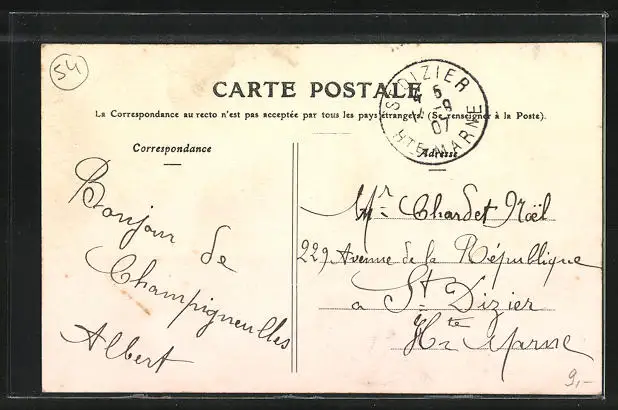 54
CARTE POSTALE
La Correspondance au recto n'est pas acceptée par tous les pays étrangers. (Se renseigner à la Poste).
ST DIZIER
5
-8
07
HTE MARNE
Correspondance
Adresse
Bonjour de
Champigneulles
Albert
Mr Chardet Noël
229 Avenue de la République
a St Dizier
Hte Marne
9,-